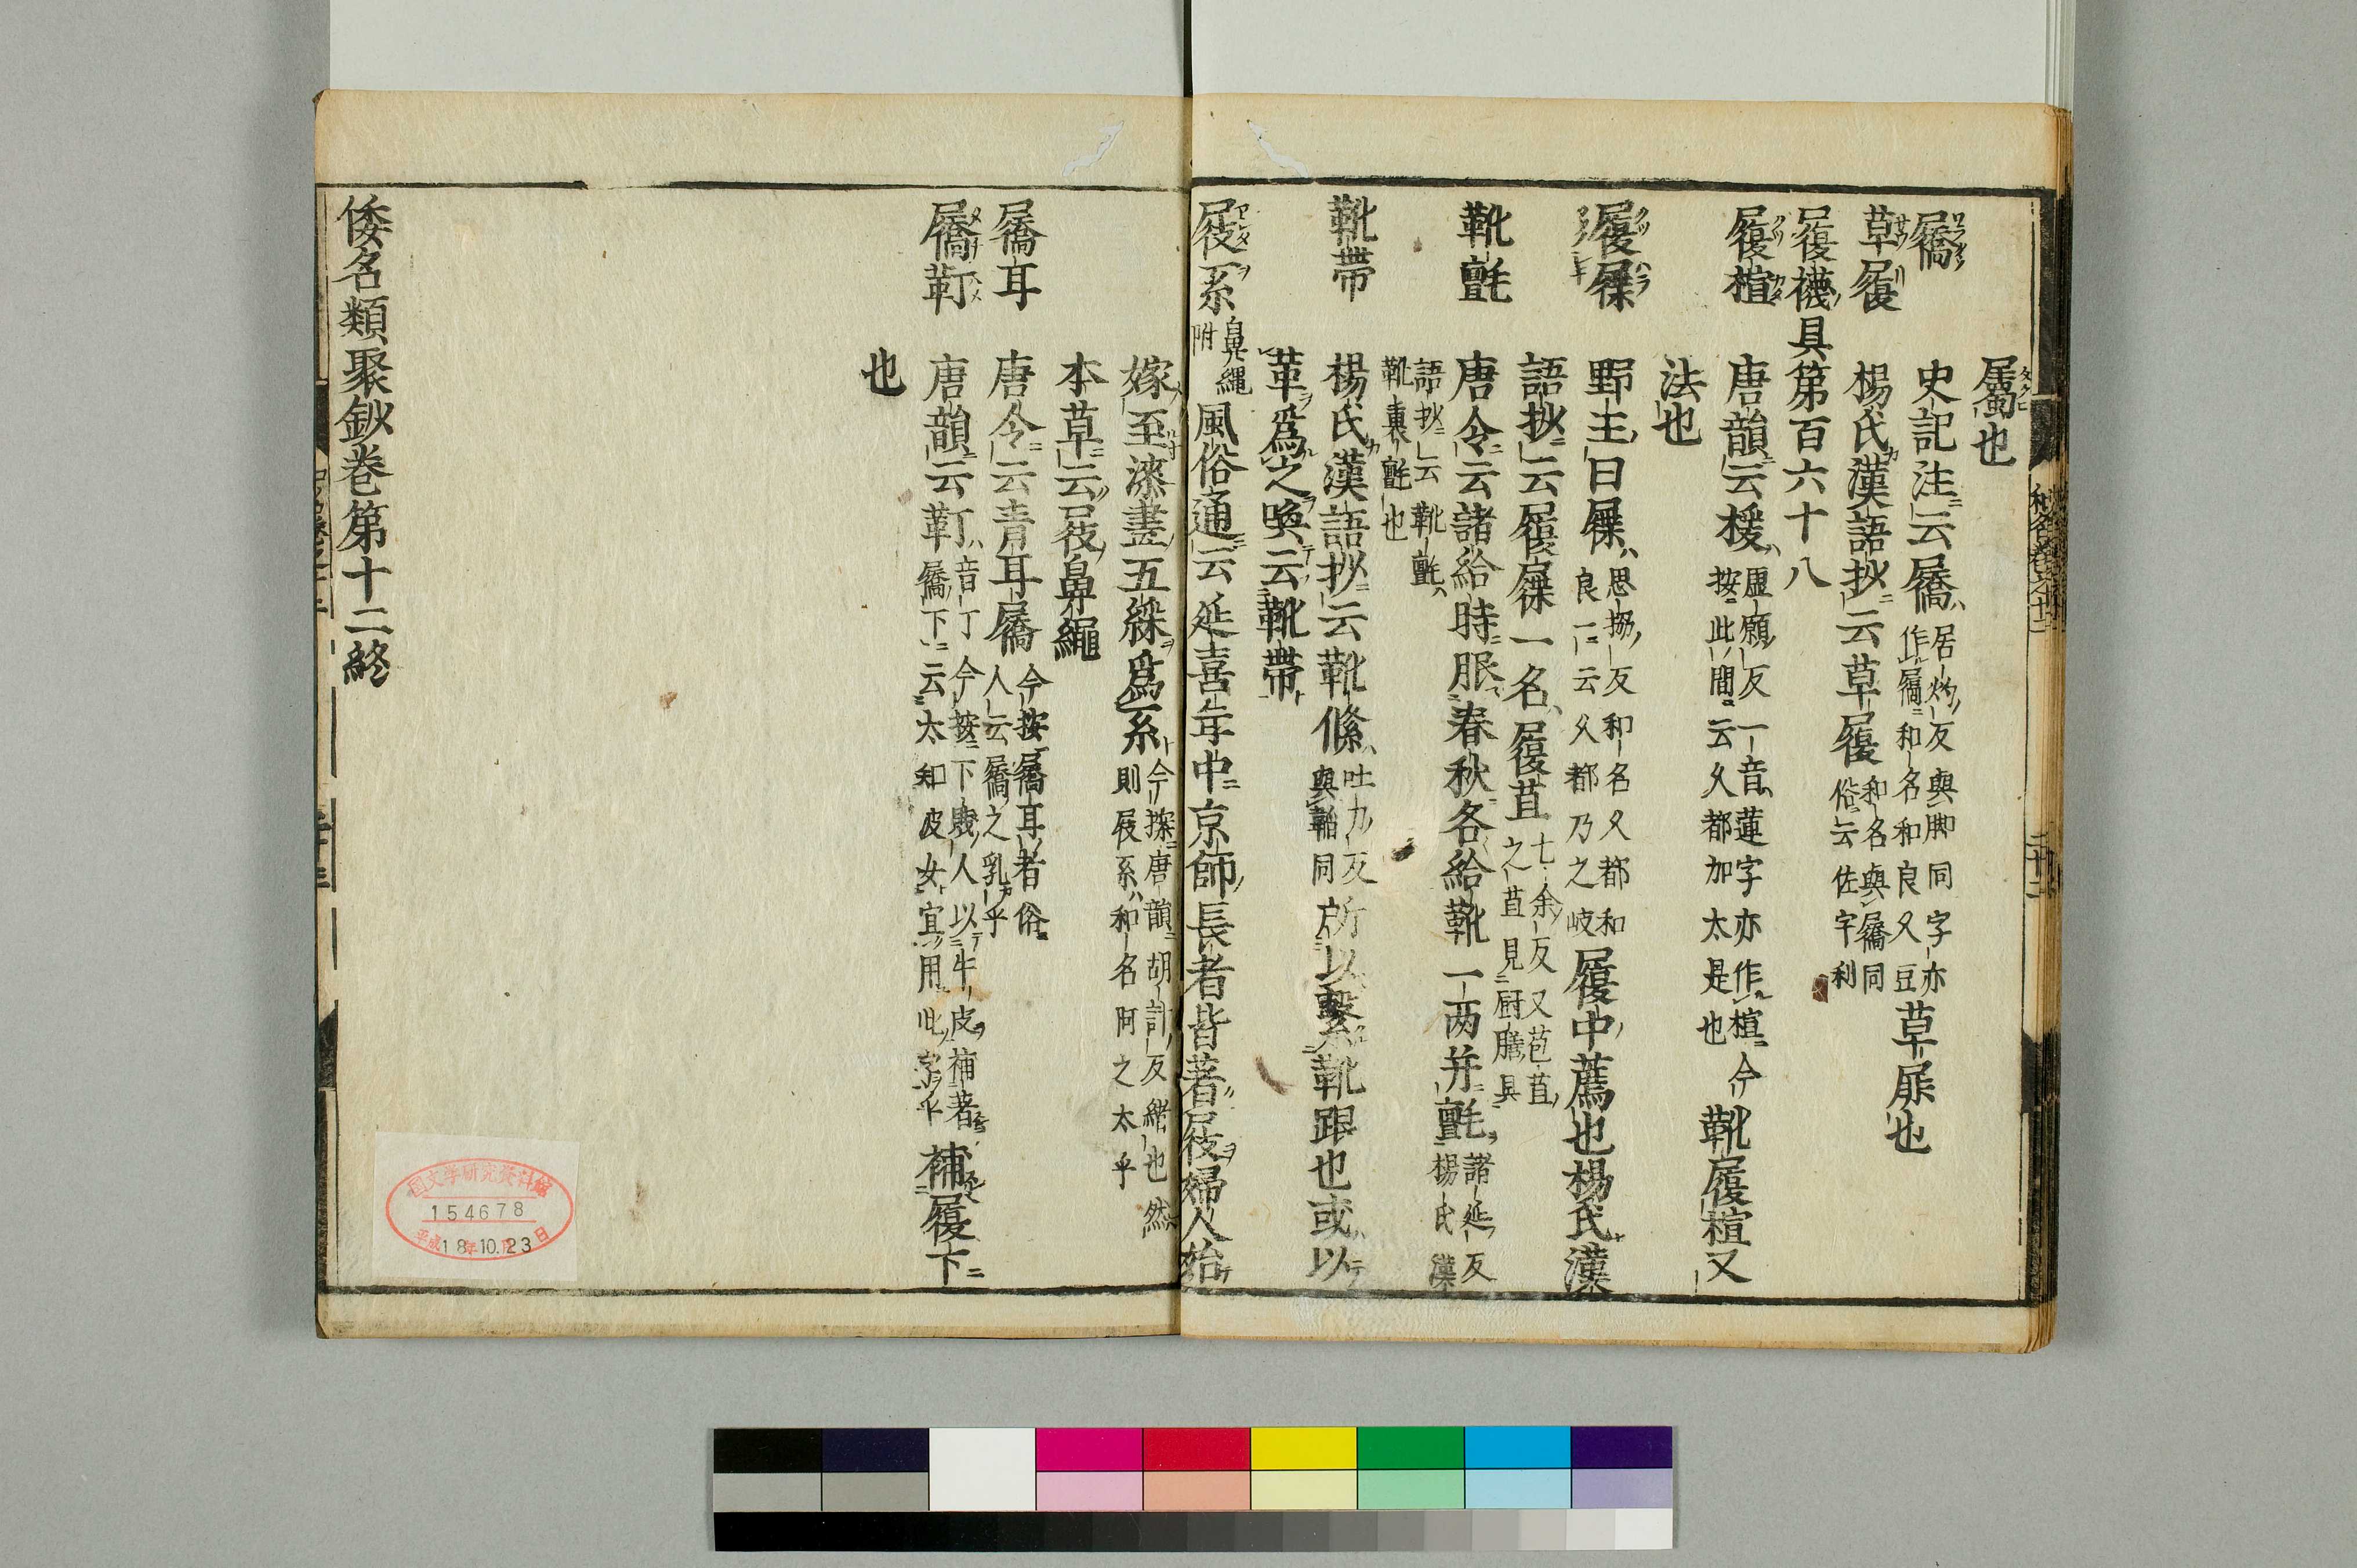 屬也
屩 史記注云屩居灼反與脚同字亦作屫和名和良久豆草屝也
草履 楊氏漢語抄云草履和名與屩同俗云佐宇利
履襪具第百六十八
履楦 唐韻云楥虛願反一音蓮字亦作楦今按此間云久都加太是也靴履楦又
法也
履屧 野王曰屧思協反和名久都和良一云久都乃之岐履中薦也楊氏漢
語抄云履屧一名履苴七余反又苞苴之苴見厨膳具
靴氈 唐令云諸給時服春秋各給靴一兩并氈諸延反楊氏漢
語抄云靴氈靴裏氈也
靴帶 楊氏漢語抄云靴絛吐刀反與韜同所以繫靴跟也或以
革爲之喚云靴帶
屐系鼻繩附 風俗通云延喜年中京師長者皆著屐婦人始
嫁至漆畫五綵爲系今按唐韻胡計反緒也然則屐系和名阿之太乎
本草云屐鼻繩
屩耳 唐令云青耳屩今按屩耳者俗人云屩之乳乎
屩靪 唐韻云靪音丁今按下賤人以牛皮補著屩下云太知波女宜用此字乎補履下
也
倭名類聚鈔卷第十二終
和名卷之十二
二十二
国文学研究資料館
154678
平成18年10.23日